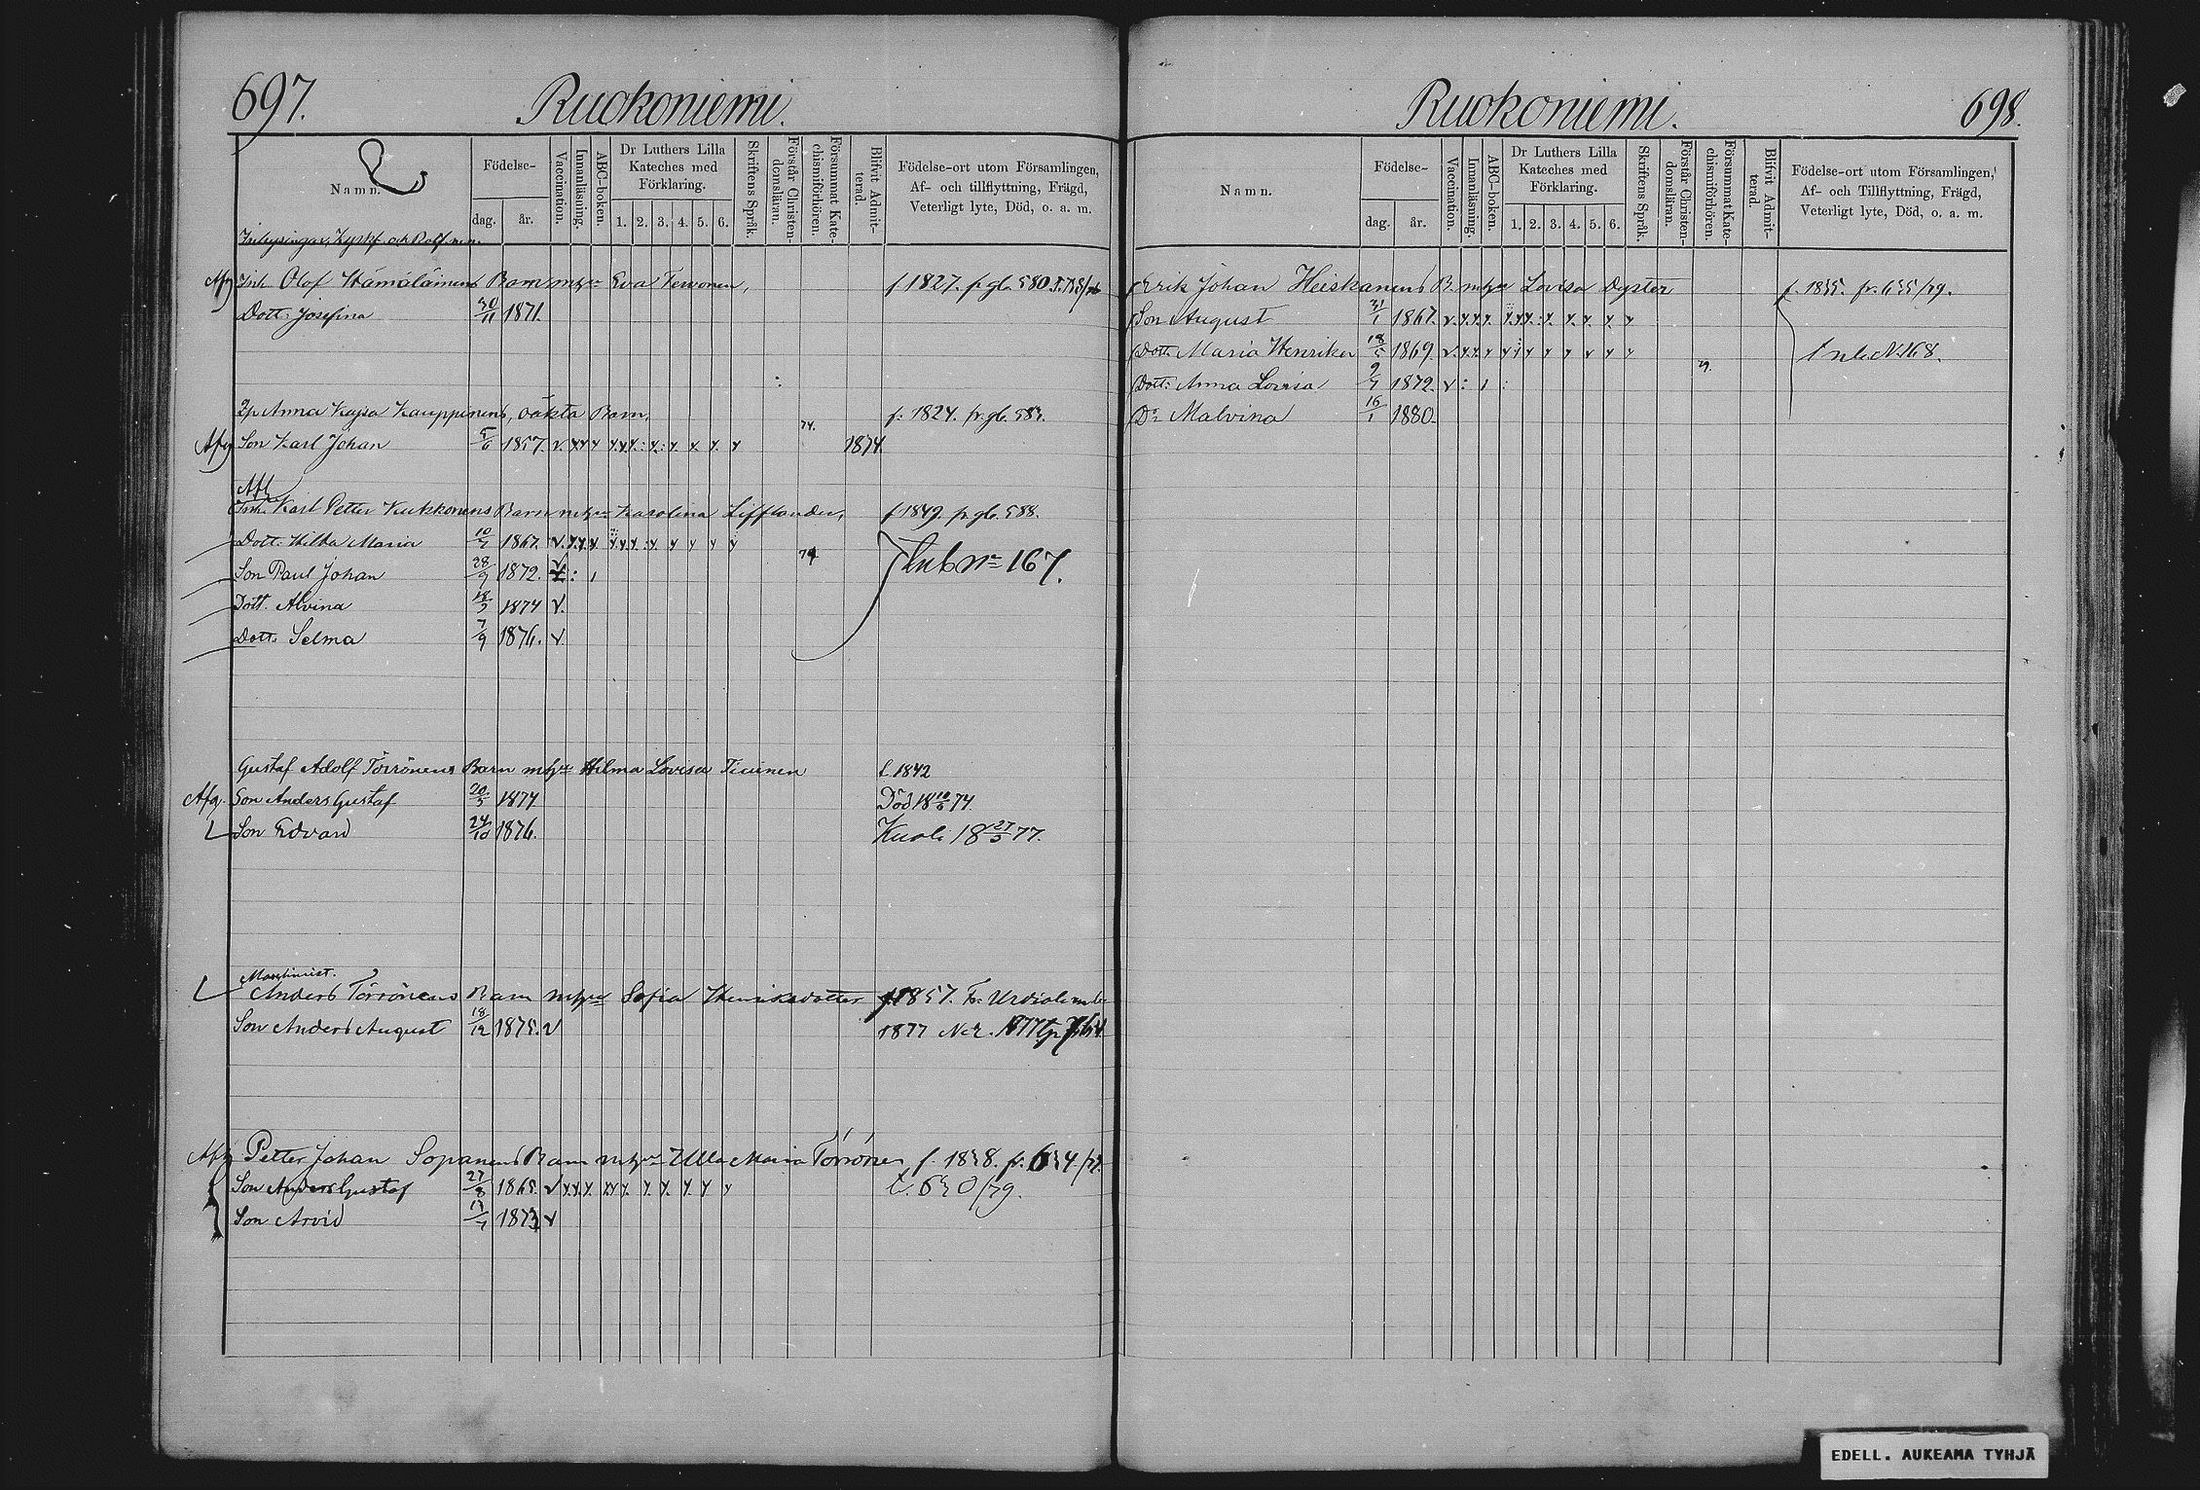 697.
Ruokoniemi.
Namn.
Födelse-
dag.
år.
Vaccination.
Innanläsning.
ABC-boken.
Dr Luthers Lilla
Kateches med
Förklaring.
1. 2. 3. 4. 5. 6.
Skriftens Språk.
Förstår Christen-
domsläran.
Försummat Kate-
chismiförhören.
Blifvit Admit-
terad.
Födelse-ort utom Församlingen,
Af- och tillflyttning, Frägd,
Veterligt lyte, Död, o. a. m.
Inh. Olof Hämäläinens Barn Eva f. 1827.
Dott. Josefina 30/11 1871.
Anna Kajsa Kauppinens, oäkta Barn, f. 1824.
Son Karl Johan 5/6 1857. 74. 1874
Inh. Karl Petter Kukkonens Barn Karolina Lifflander, f 1849. 588.
Dott. Hilda Maria 10/7 1867.
Son Paul Johan 28/9 1872. Inb No 167.
Dött. Alvina 18/3 1874
Dott. Selma 7/9 1876.
Gustaf Adolf Törrönens Barn Hilma Lovisa Tiainen f. 1842
Afg. Son Anders Gustaf 20/5 1874 Död
Son Edvard 24/10 1876. Kuol. 18 27/3 77.
Maschinist.
Anders Törrönens Barn Sofia Henriksdotter f 1857.
Son Anders August 18/12 1875. 1877
Petter Johan Sopanens Barn Ulla Maria Törrönen f. 1838.
Son Anders Gustaf 27/8 1865. t. 630/79.
Son Arvid 1873
Ruokoniemi.
698.
Namn.
Födelse-
dag.
år.
Vaccination.
Innanläsning.
ABC-boken.
Dr Luthers Lilla
Kateches med
Förklaring.
1. 2. 3. 4. 5. 6.
Skriftens Språk.
Förstår Christen-
domsläran.
Försummat Kate-
chismiförhören.
Blifvit Admit-
terad.
Födelse-ort utom Församlingen,
Af- och Tillflyttning, Frägd,
Veterligt lyte, Död, o. a. m.
Erik Johan Heiskanens B. Lovisa Dyster f. 1835. fr. 635/79.
Son August 31/1 1867.
Dott. Maria Henrika 18/5 1869. 79. Inb. No 168.
Dott. Anna Lovisa 9/7 1872.
Do Malvina 16/1 1880.
EDELL. AUKEAMA TYHJÄ